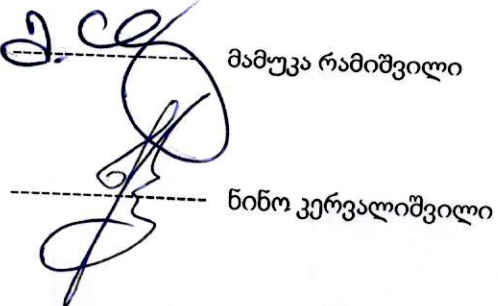 მამუკა რამიშვილი
ნინო კერვალიშვილი